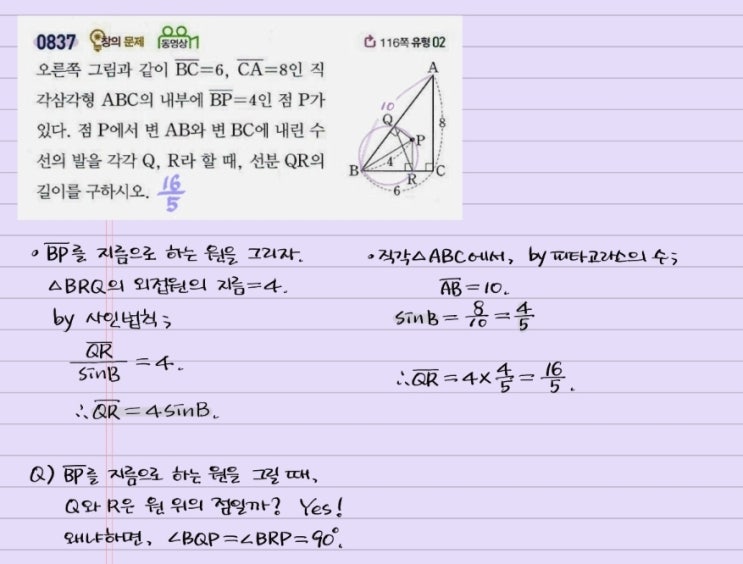 0837 창의 문제 동영상 116쪽 유형 02
오른쪽 그림과 같이 BC=6, CA=8인 직
각삼각형 ABC의 내부에 BP=4인 점 P가
있다. 점 P에서 변 AB와 변 BC에 내린 수
선의 발을 각각 Q, R라 할 때, 선분 QR의
길이를 구하시오. 16/5
A
10
Q
8
P
4
B
R
C
6
• BP를 지름으로 하는 원을 그리자.
△BRQ의 외접원의 지름=4.
by 사인법칙;
QR/sinB = 4.
∴ QR = 4sinB.
• 직각△ABC에서, by 피타고라스의 수;
AB = 10.
sinB = 8/10 = 4/5
∴ QR = 4 × 4/5 = 16/5.
Q) BP를 지름으로 하는 원을 그릴 때,
Q와 R은 원 위의 점일까? Yes!
왜냐하면, ∠BQP=∠BRP=90°.